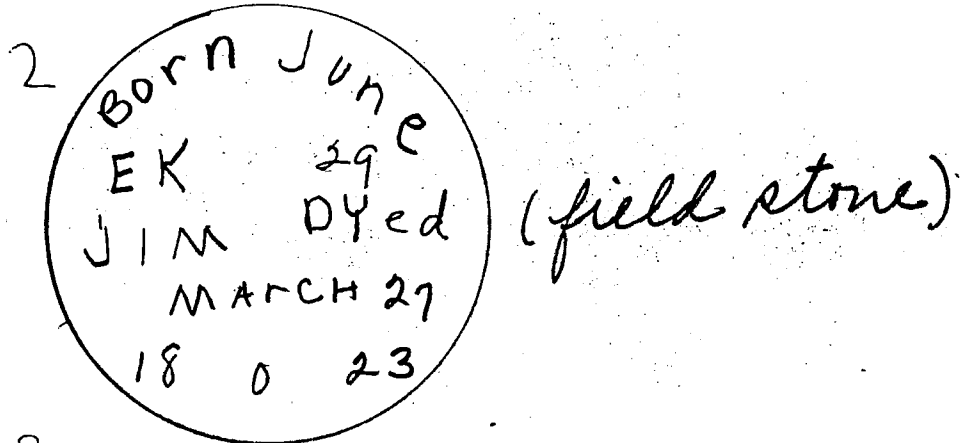 2
Born June
EK 29
JIM DYed
MArCH 27
18 0 23
(field stone)